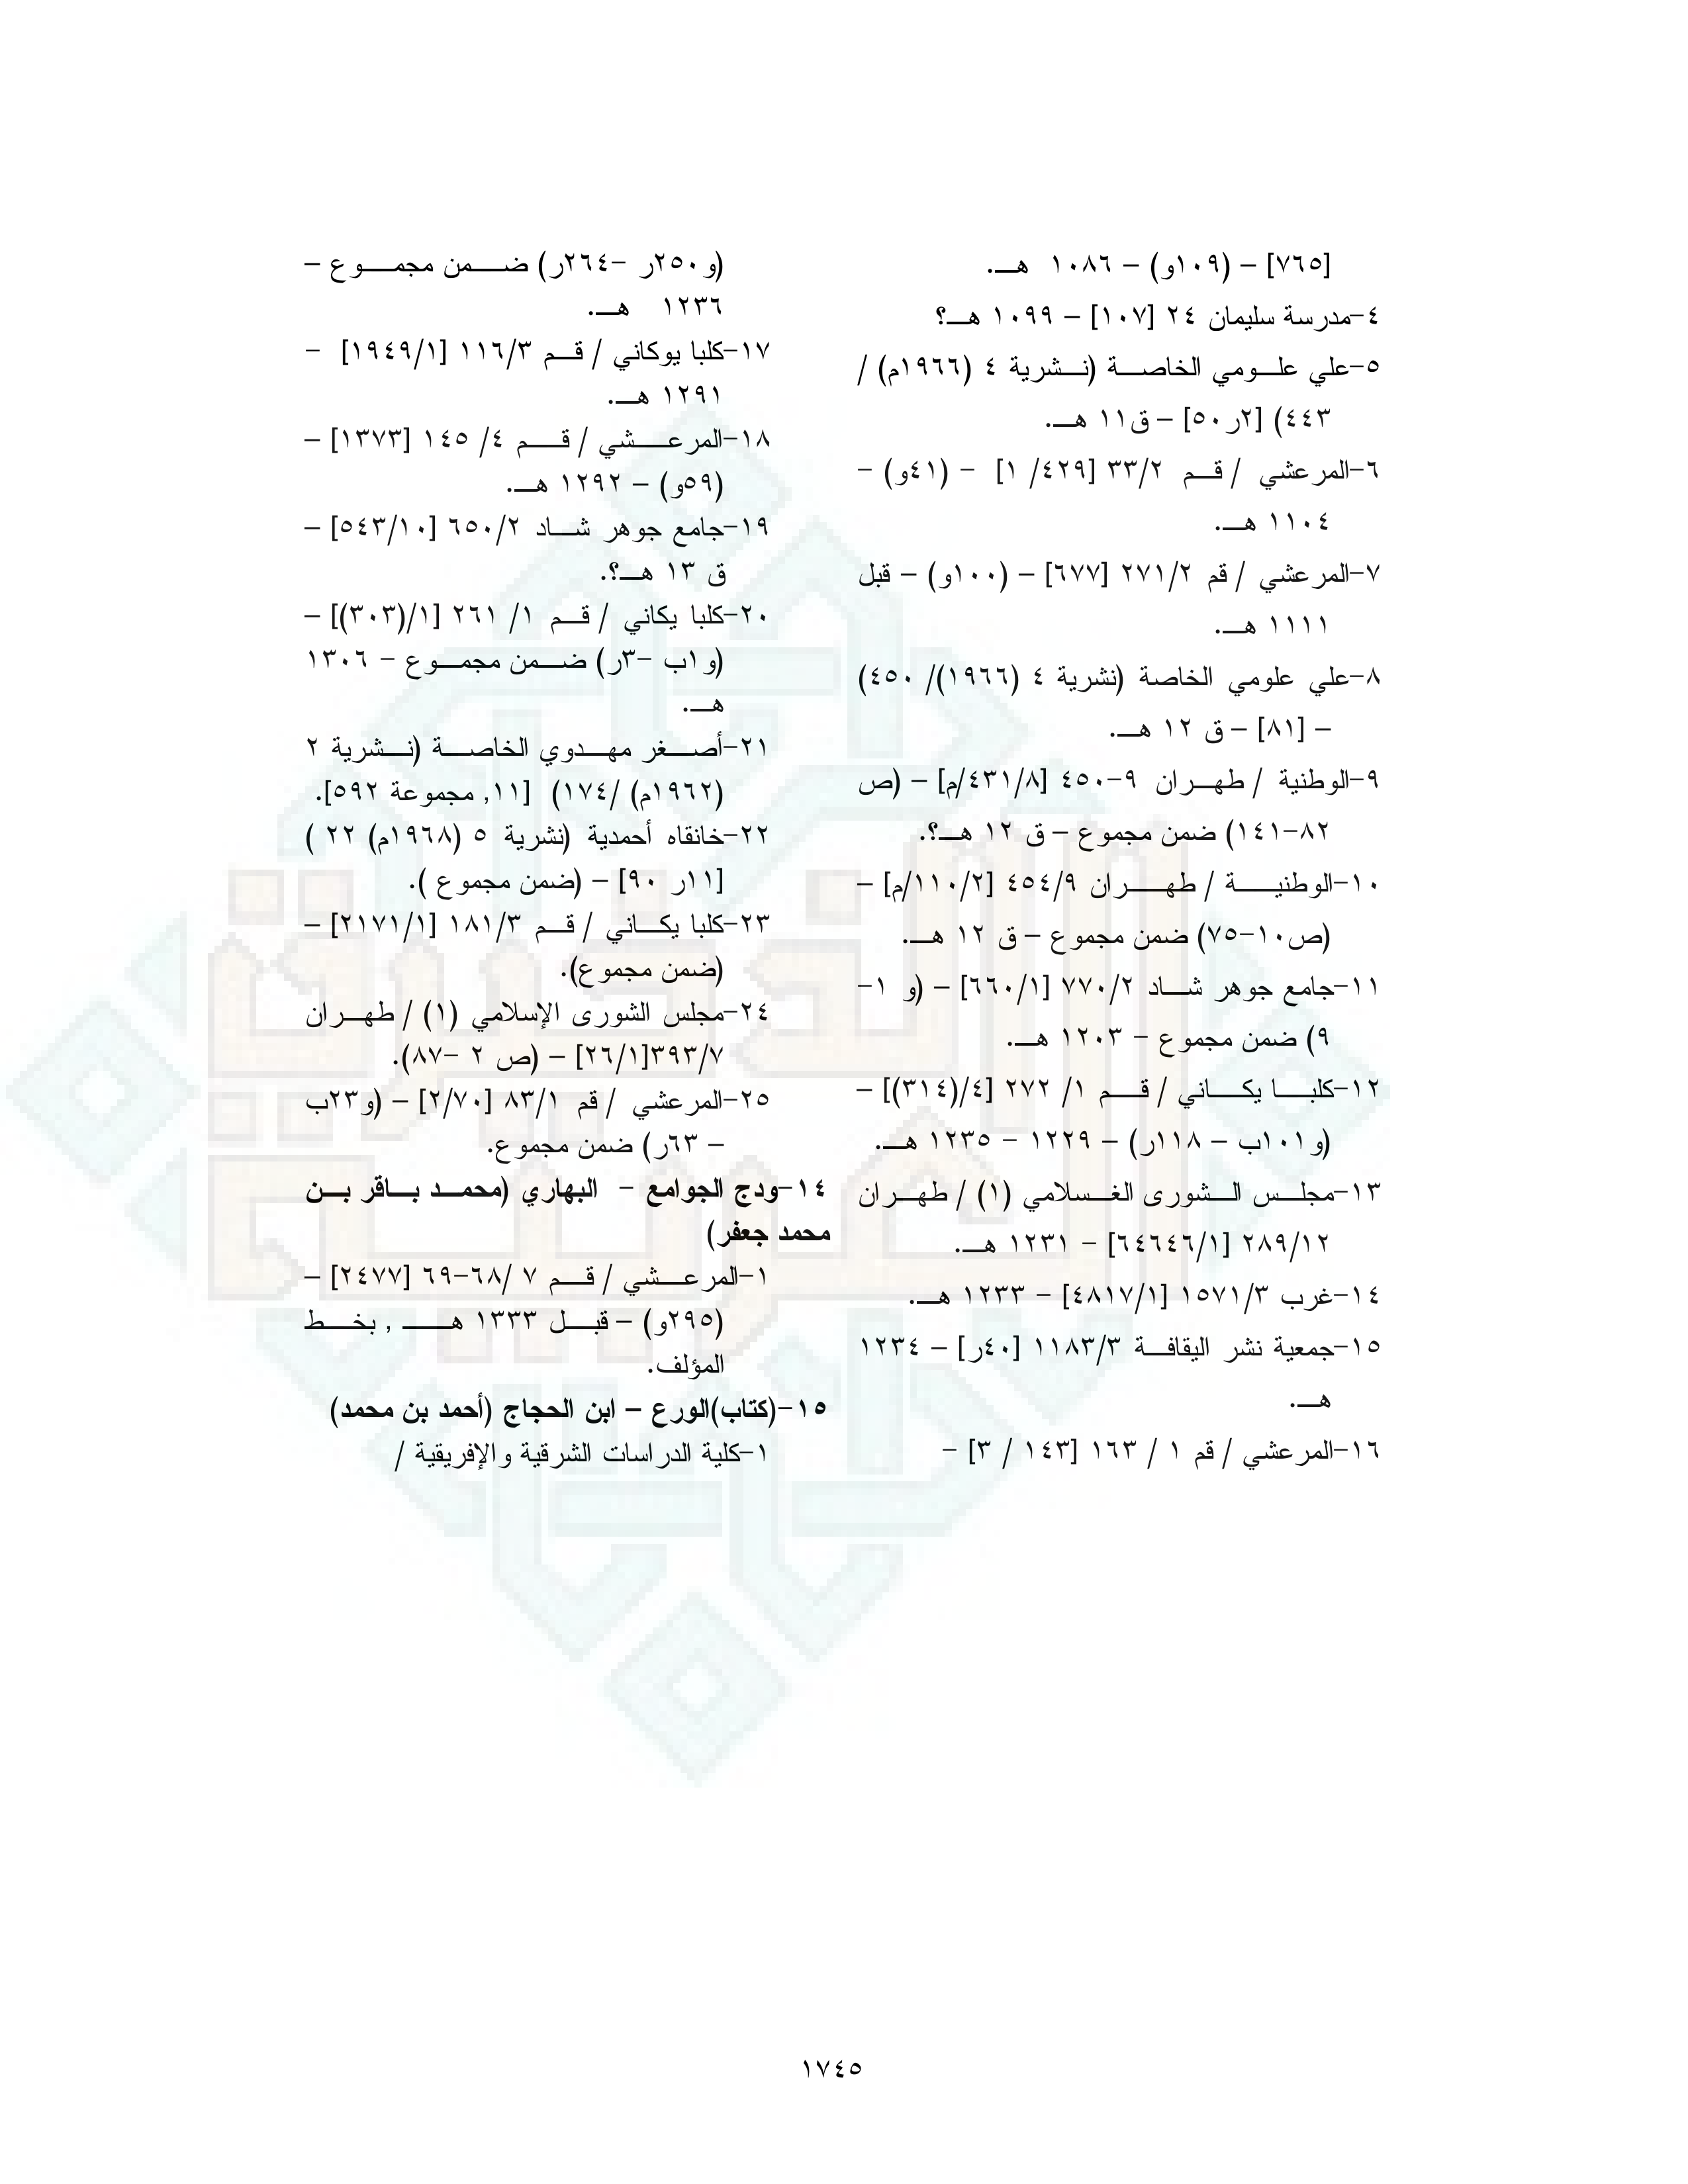 [٧٦٥] – (١٠٩و) – ١٠٨٦ هـ.
٤-مدرسة سليمان ٢٤ [١٠٧] – ١٠٩٩ هـ؟
٥-علي علومي الخاصة (نشرية ٤ (١٩٦٦م) /
٤٤٣) [٢ر٥٠] – ق١١ هـ.
٦-المرعشي / قم ٣٣/٢ [٤٢٩/ ١] – (٤١و) –
١١٠٤ هـ.
٧-المرعشي / قم ٢٧١/٢ [٦٧٧] – (١٠٠و) – قبل
١١١١ هـ.
٨-علي علومي الخاصة (نشرية ٤ (١٩٦٦)/ ٤٥٠)
– [٨١] – ق ١٢ هـ.
٩-الوطنية / طهران ٩-٤٥٠ [٤٣١/٨/م] – (ص
٨٢-١٤١) ضمن مجموع – ق ١٢ هـ؟.
١٠-الوطنية / طهران ٤٥٤/٩ [١١٠/٢/م] –
(ص١٠-٧٥) ضمن مجموع – ق ١٢ هـ.
١١-جامع جوهر شاد ٧٧٠/٢ [٦٦٠/١] – (و ١-
٩) ضمن مجموع – ١٢٠٣ هـ.
١٢-كلبا يكاني / قم ١/ ٢٧٢ [٤/(٣١٤)] –
(و١٠١ب – ١١٨ر) – ١٢٢٩ – ١٢٣٥ هـ.
١٣-مجلس الشورى الغسلامي (١) / طهران
٢٨٩/١٢ [٦٤٦٤٦/١] – ١٢٣١ هـ.
١٤-غرب ١٥٧١/٣ [٤٨١٧/١] – ١٢٣٣ هـ.
١٥-جمعية نشر اليقافة ١١٨٣/٣ [٤٠ر] – ١٢٣٤
هـ.
١٦-المرعشي / قم ١ / ١٦٣ [١٤٣ / ٣] –
(و٢٥٠ر -٢٦٤ر) ضمن مجموع –
١٢٣٦ هـ.
١٧-كلبا يوكاني / قم ١١٦/٣ [١٩٤٩/١] –
١٢٩١ هـ.
١٨-المرعشي / قم ٤/ ١٤٥ [١٣٧٣] –
(٥٩و) – ١٢٩٢ هـ.
١٩-جامع جوهر شاد ٦٥٠/٢ [٥٤٣/١٠] –
ق ١٣ هـ؟.
٢٠-كلبا يكاني / قم ١/ ٢٦١ [١/(٣٠٣)] –
(و١ب -٣ر) ضمن مجموع – ١٣٠٦
هـ.
٢١-أصغر مهدوي الخاصة (نشرية ٢
(١٩٦٢م) /١٧٤) [١١, مجموعة ٥٩٢].
٢٢-خانقاه أحمدية (نشرية ٥ (١٩٦٨م) ٢٢ )
[١١ر ٩٠] – (ضمن مجموع ).
٢٣-كلبا يكاني / قم ١٨١/٣ [٢١٧١/١] –
(ضمن مجموع).
٢٤-مجلس الشورى الإسلامي (١) / طهران
٣٩٣/٧[٢٦/١] – (ص ٢ -٨٧).
٢٥-المرعشي / قم ٨٣/١ [٢/٧٠] – (و٢٣ب
– ٦٣ر) ضمن مجموع.
١٤-ودج الجوامع – البهاري (محمد باقر بن
محمد جعفر)
١-المرعشي / قم ٧ /٦٨-٦٩ [٢٤٧٧] –
(٢٩٥و) – قبل ١٣٣٣ هـ , بخط
المؤلف.
١٥-(كتاب)الورع – ابن الحجاج (أحمد بن محمد)
١-كلية الدراسات الشرقية والإفريقية /
١٧٤٥